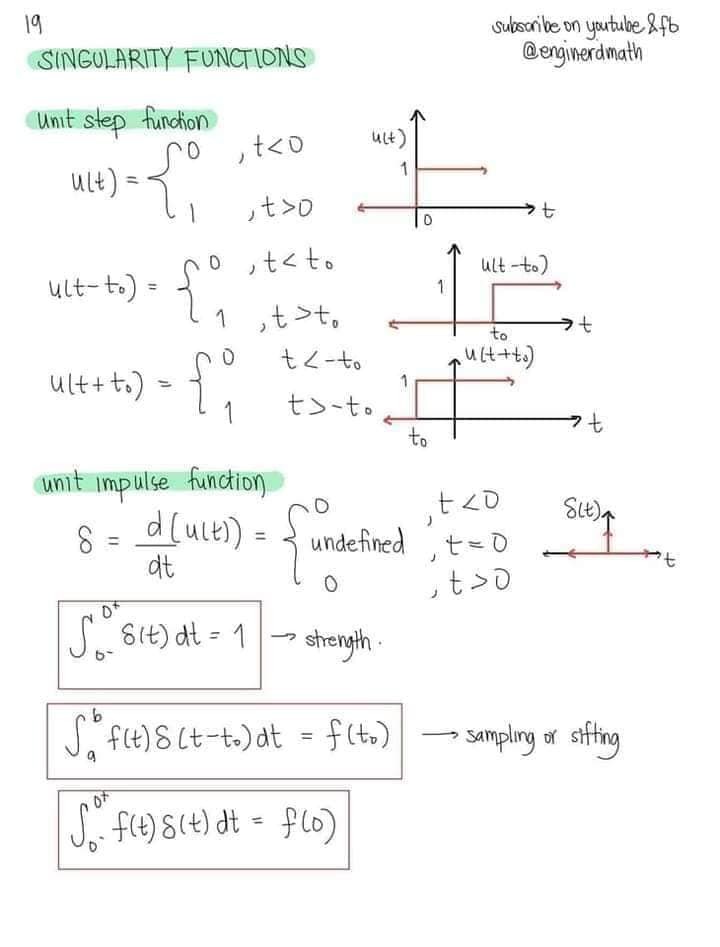 19
subscribe on youtube & fb
@enginerdmath
SINGULARITY FUNCTIONS
unit step function
u(t) = { 0 , t<0
1 , t>0
u(t)
1
0
t
u(t-t₀) = { 0 , t<t₀
1 , t>t₀
u(t-t₀)
1
t₀
t
u(t+t₀) = { 0 t<-t₀
1 t>-t₀
u(t+t₀)
1
t₀
t
unit impulse function
δ = d(u(t))/dt = { 0 , t<0
undefined , t=0
0 , t>0
δ(t)
t
∫₀₋⁰⁺ δ(t) dt = 1 → strength.
∫ₐᵇ f(t) δ(t-t₀) dt = f(t₀) → sampling or sifting
∫₀₋⁰⁺ f(t) δ(t) dt = f(0)